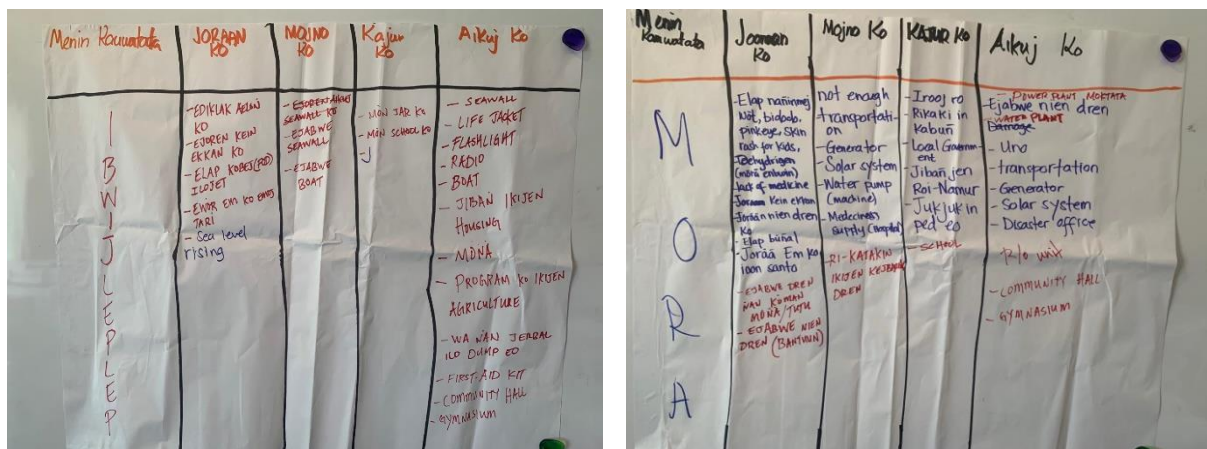 Menin Kauwatata
JORAAN
KO
MOJNO
KO
Kajur
Ko
Aikuj Ko
I
B
W
I
J
L
E
P
L
E
P
- EDIKLAK AELAN
KO
- EJOREN KEIN
EKKAN KO
- ELAP KOBEJ
ILOJET
- EWOR EM KO
TARI
- Sea level
rising
- EJOREN
SEAWALL KO
- EJABWE
SEAWALL
- EJABWE
BOAT
- MŌN JAR KO
- MŌN SCHOOL KO
- J
- SEAWALL
- LIFE JACKET
- FLASHLIGHT
- RADIO
- BOAT
- JIBAN IKIJEN
HOUSING
- MŌÑA
- PROGRAM KO IKIJEN
AGRICULTURE
- WA ÑAN JERBAL
ILO DUMP EO
- FIRST-AID KIT
- COMMUNITY HALL
- GYMNASIUM
Menin
Kauwatata
Joraan
Ko
Mojno Ko
KAJUR Ko
Aikuj Ko
M
O
R
A
- Elap nañinmej
pinkeye, skin
rash for kids,
lack of medicine
Joraan Kein ekkan
Joraan nien dren
Ko
- Elap būñal
- Joraa Em Ko
- EJABWE DREN
ÑAN KŌMAN
MŌÑA/TUTU
- EJABWE NIEN
DREN (BANTUUN)
not enough
transportati-
on
- Generator
- Solar system
- Water pump
(machine)
- Medeciness
supply (hospital)
- RI-KATAKIN
IKIJEN
DREN
- Irooj ro
- Rikaki in
Kabuñ
- Local Governm-
ent
- Jibañ jen
Roi-Namur
- Jukjuk in
ped eo
- SCHOOL
- POWER PLANT MOKTATA
- Ejabwe nien dren
- WATER PLANT
Damage
- Uno
- transportation
- Generator
- Solar system
- Disaster office
- R/o unit
- COMMUNITY HALL
- GYMNASIUM